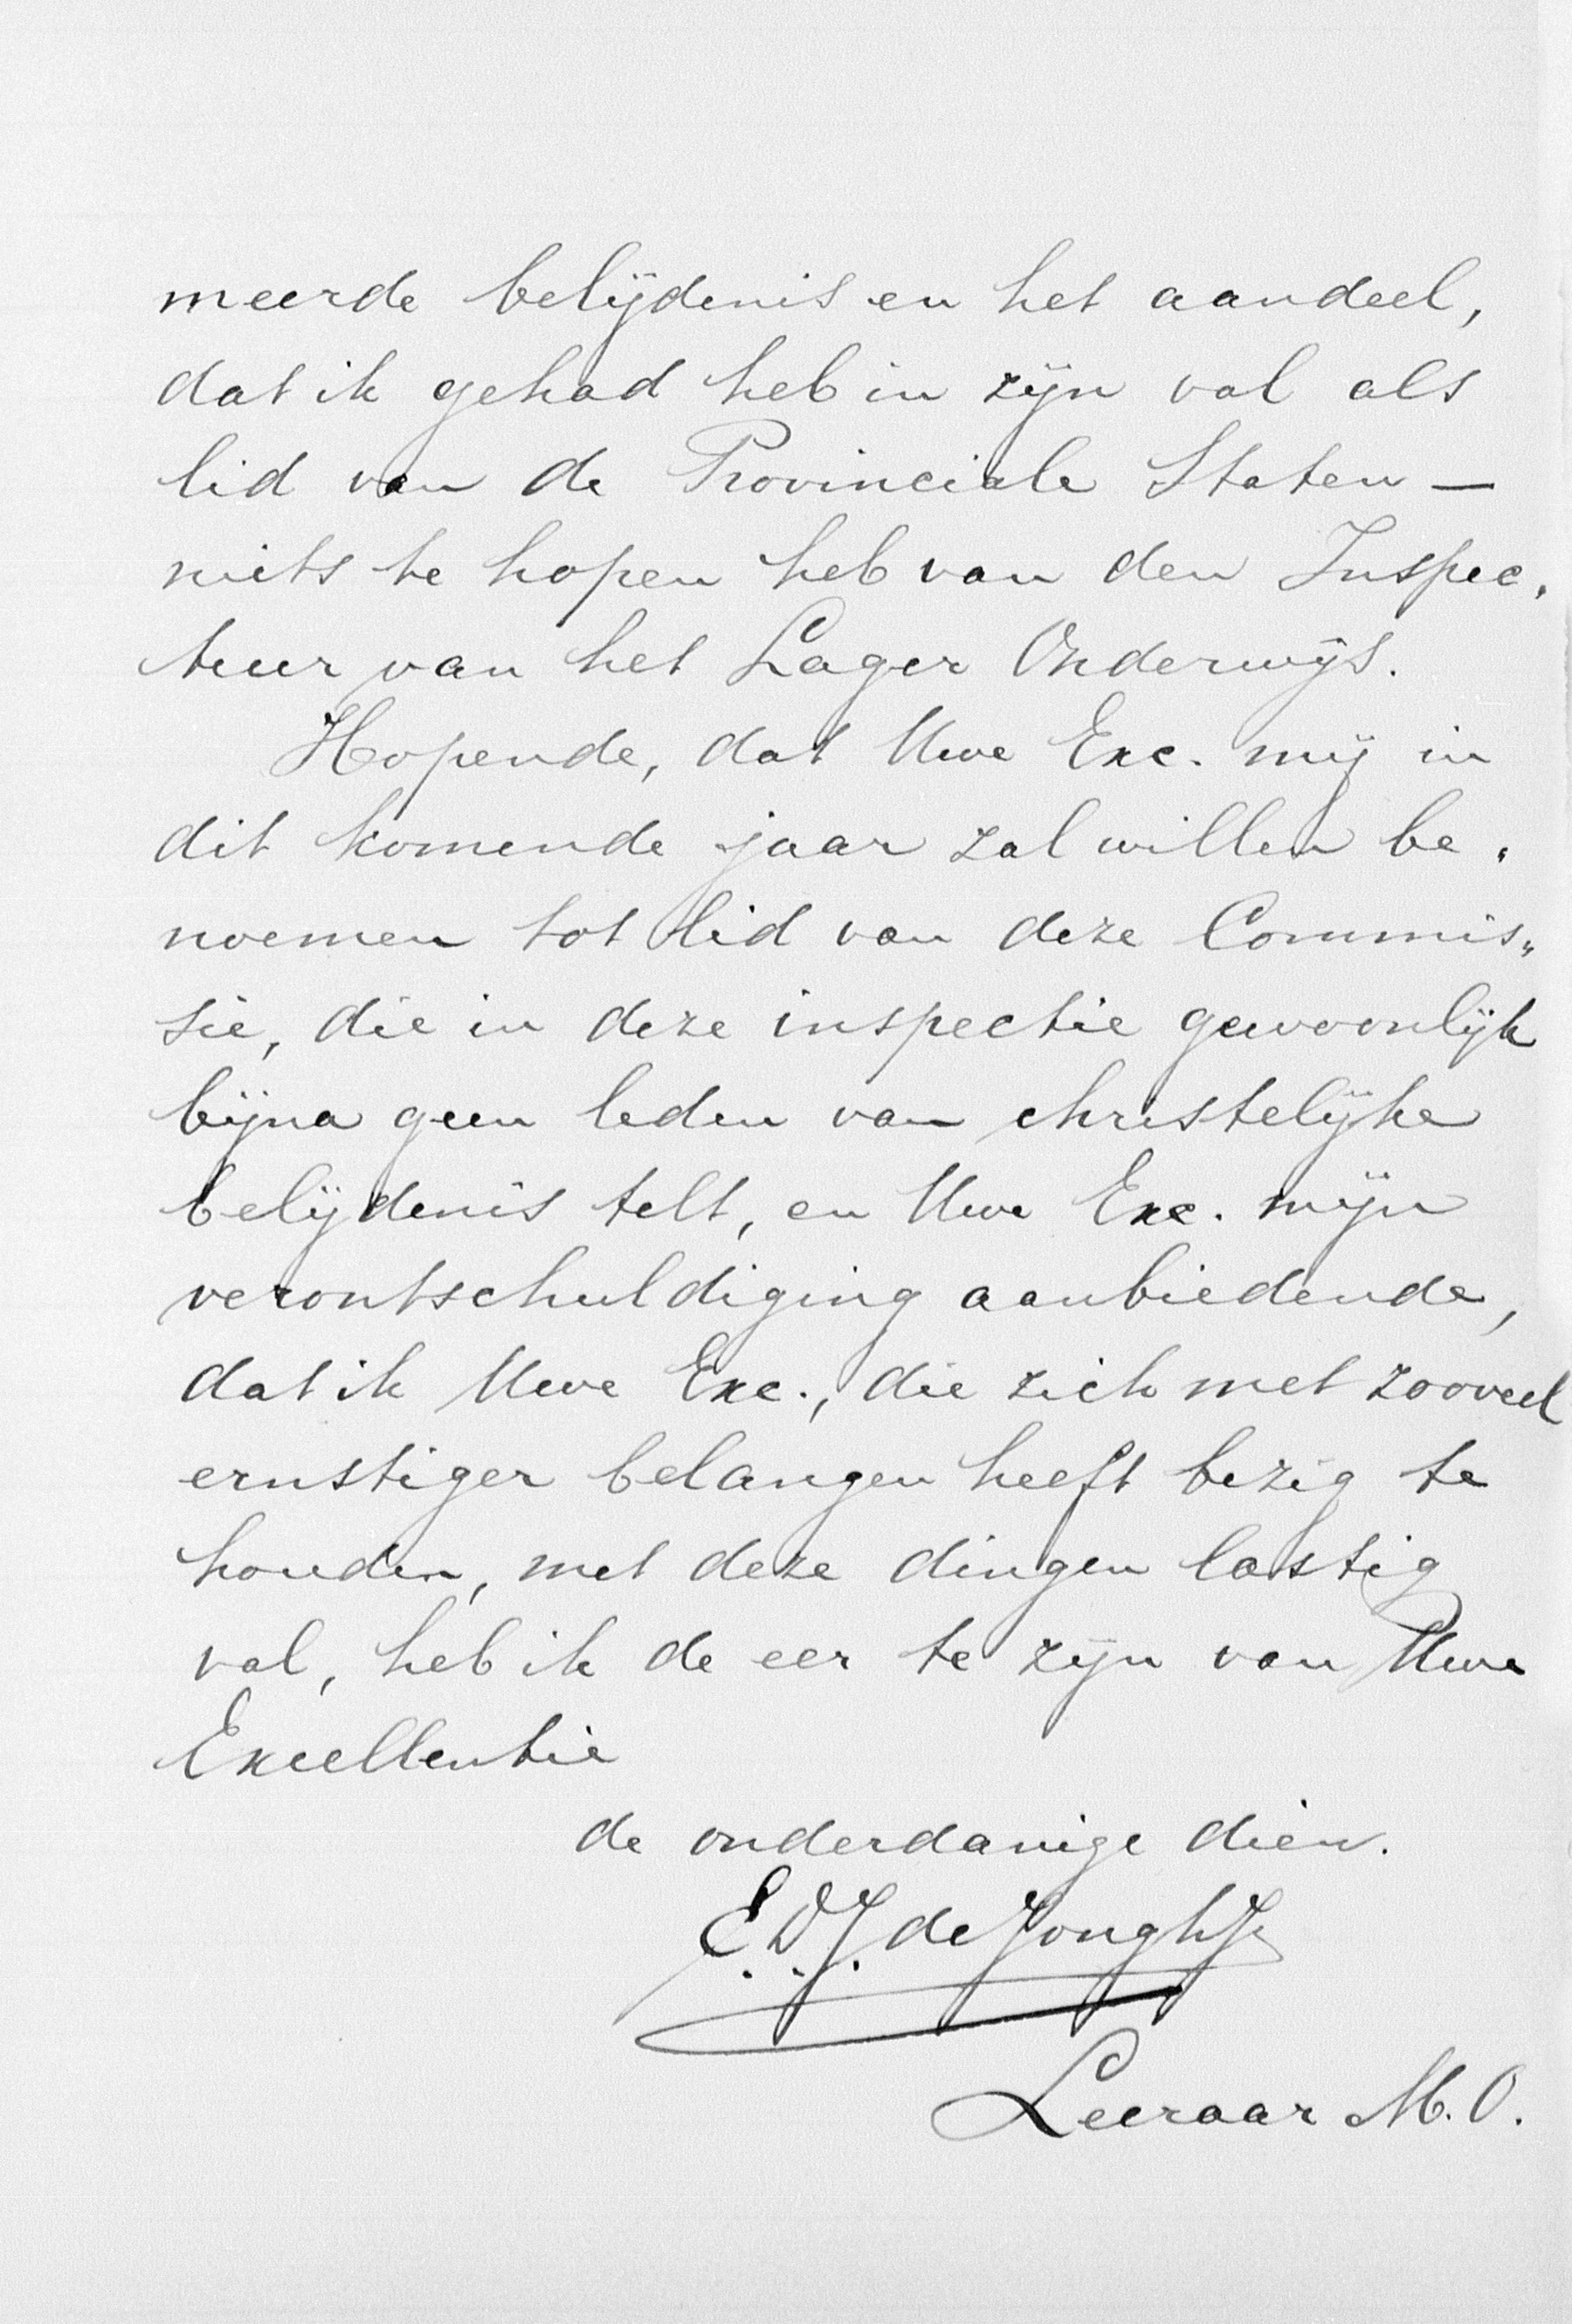 meerde belijdenis en het aandeel,
dat ik gehad heb in zijn val als
lid van de Provinciale Staten —
niets te hopen heb van den Inspec„
teur van het Lager Onderwijs.
Hopende, dat Uwe Exc. mij in
dit komende jaar zal willen be„
noemen tot lid van deze Commis„
sie, die in deze inspectie gewoonlijk
bijna geen leden van christelijke
belijdenis telt, en Uwe Exc. mijn
verontschuldiging aanbiedende,
dat ik Uwe Exc., die zich met zooveel
ernstiger belangen heeft bezig te
houden, met deze dingen lastig
val, heb ik de eer te zijn van Uwe
Excellentie
de onderdanige dien.
E. D. J. de Jongh Jr
Leeraar M. O.